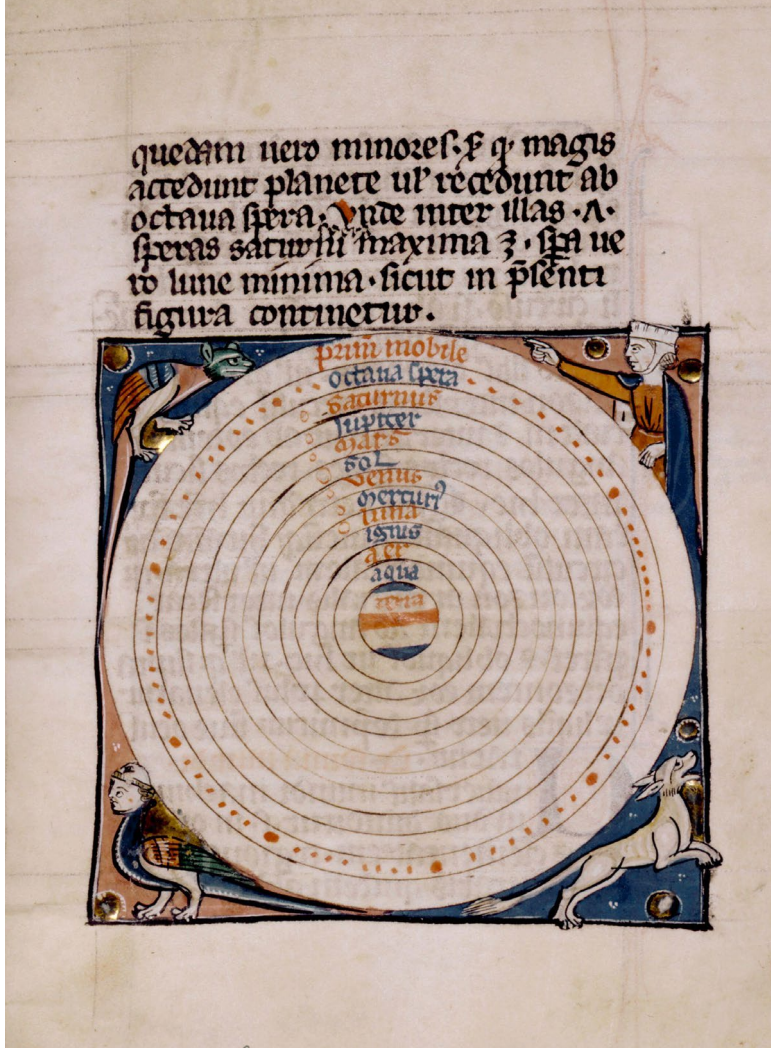 quedam uero minores. ꝑ q magis
accedunt planete ul' recedunt ab
octaua spera. Vnde inter illas .A.
speras saturni maxima ʒ. spa ue
ro lune minima. sicut in p̄senti
figura continetur.
primū mobile
octaua spera
Saturnus
Jupiter
mars
Sol
Venus
Mercuriꝰ
luna
ignis
aer
aqua
terra